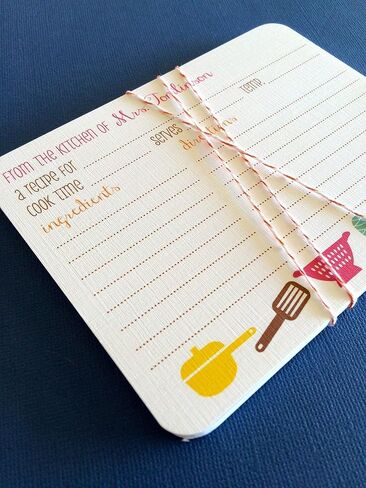 FROM THE KITCHEN OF Mrs. Tomlinson
a recipe for serves
cook time temp.
ingredients directions